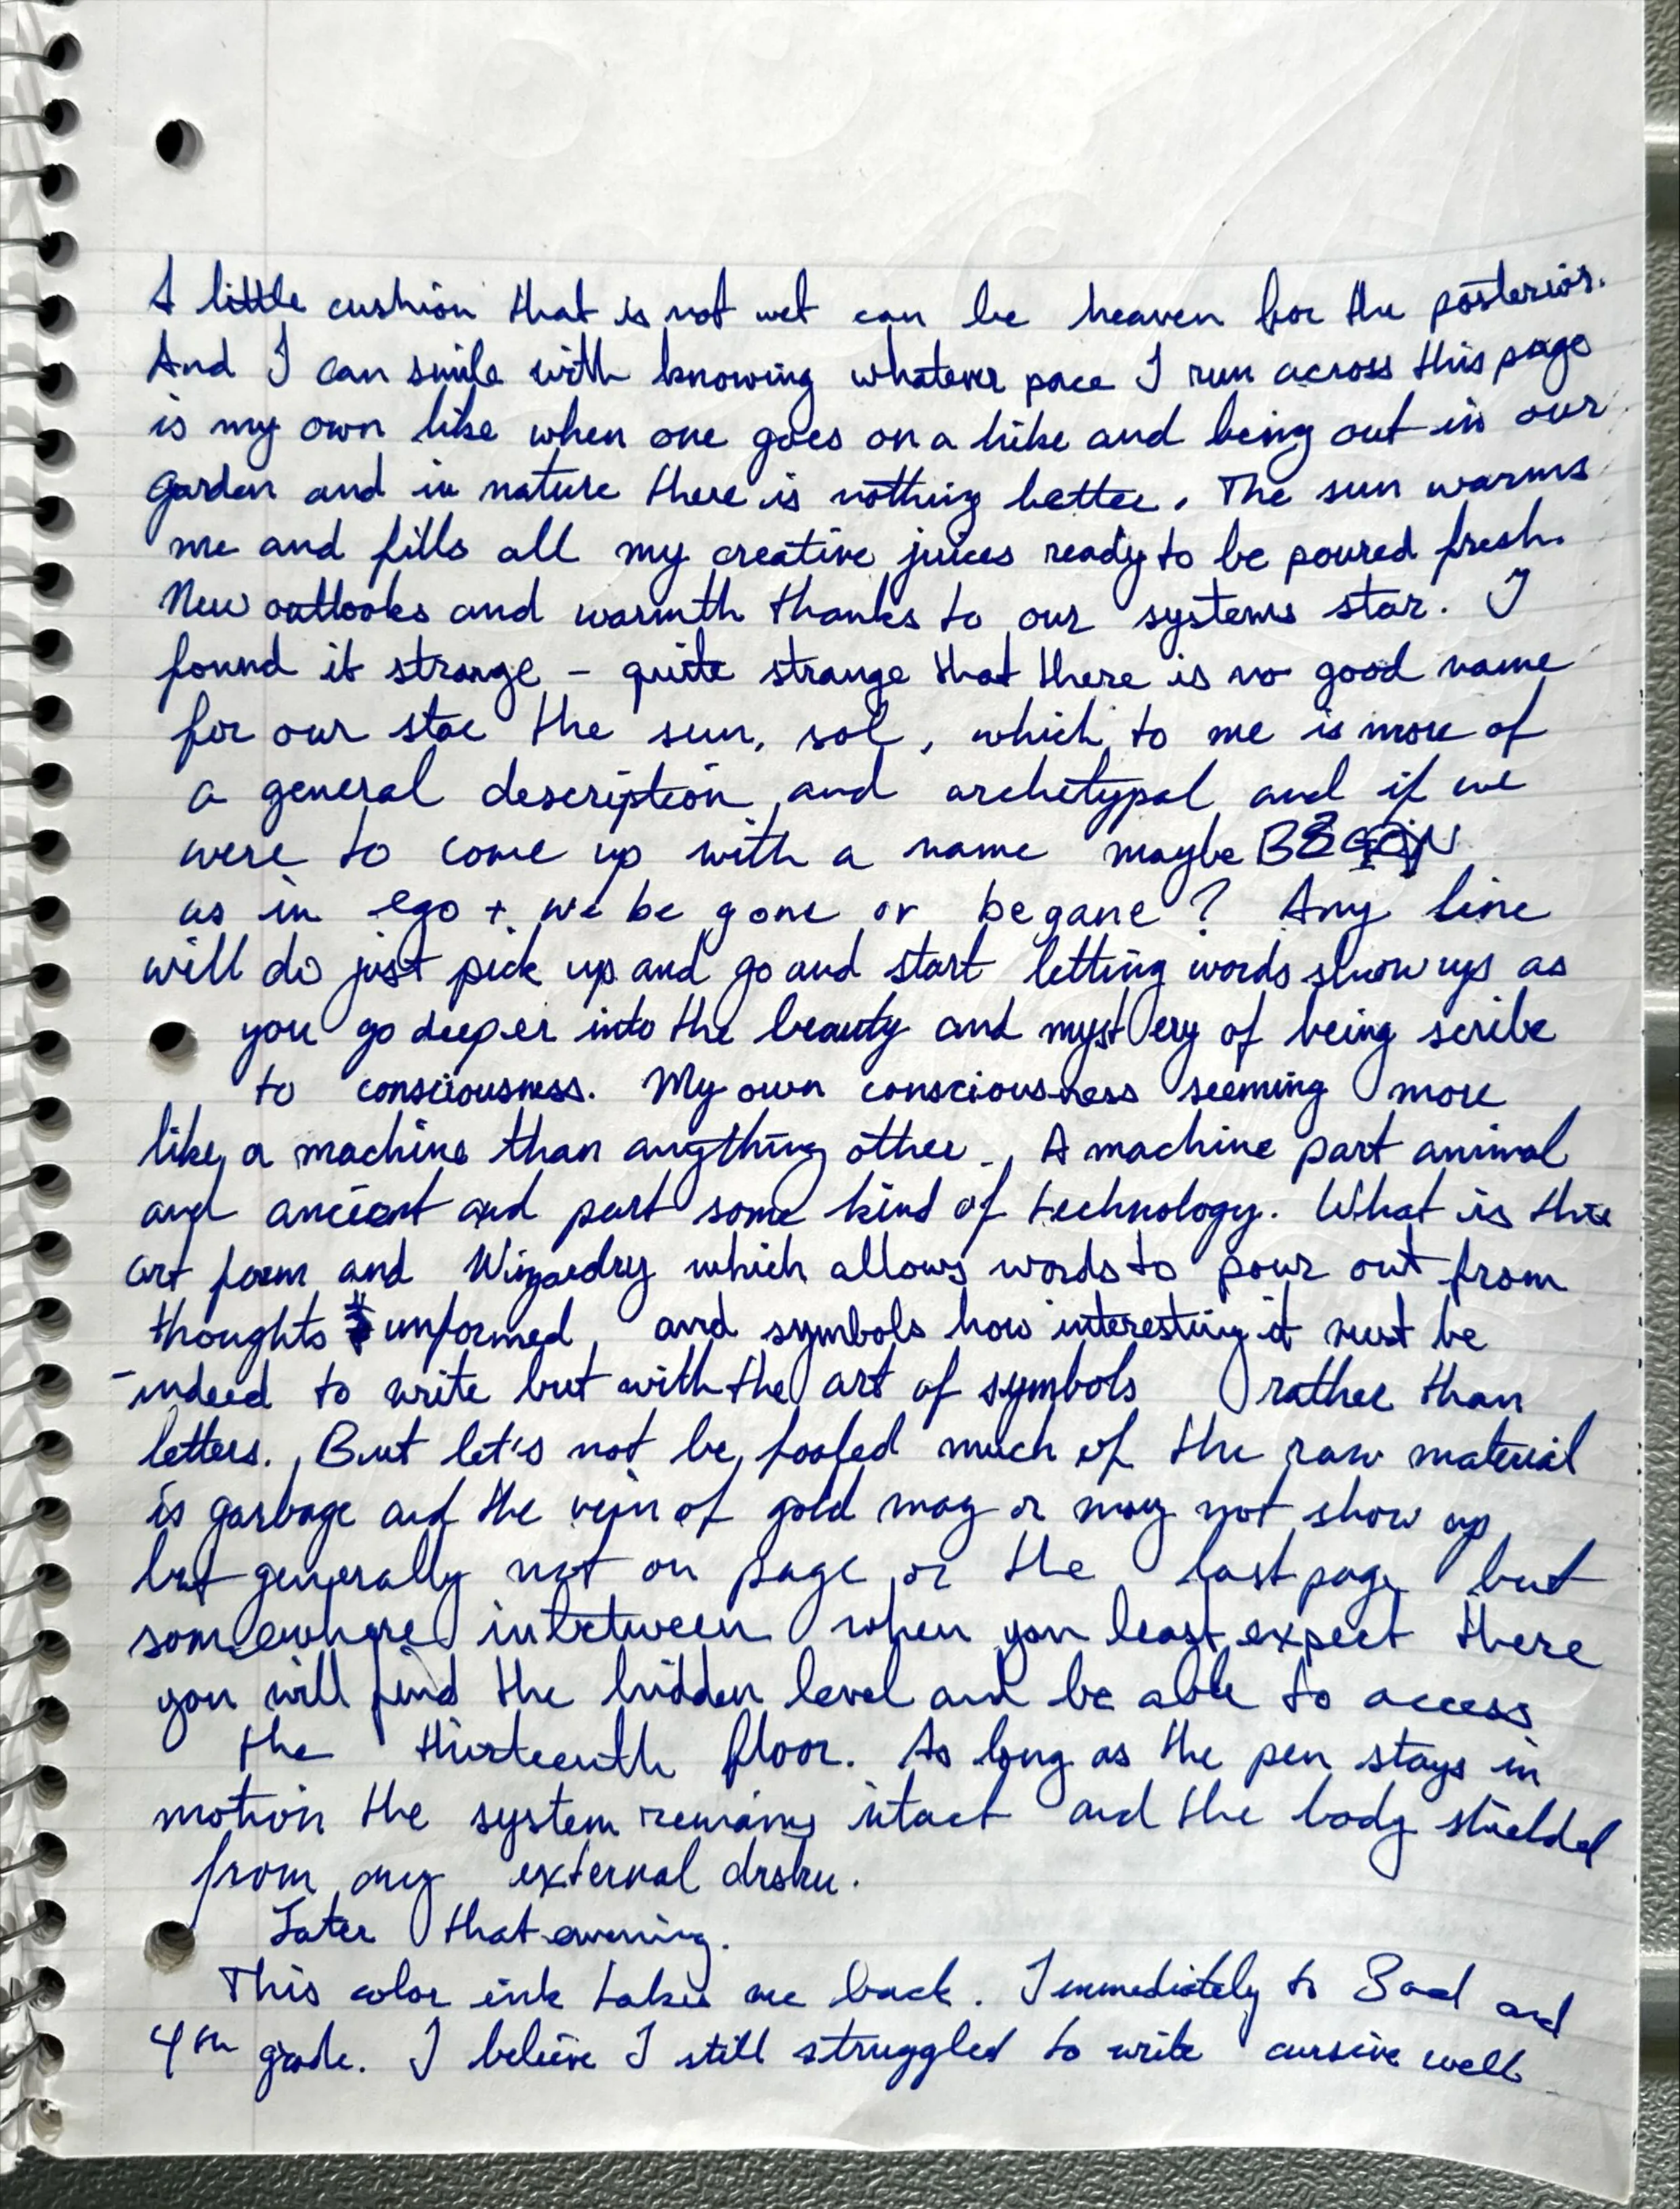 A little cushion that is not wet can be heaven for the posterior.
And I can smile with knowing whatever pace I run across this page
is my own like when one goes on a hike and being out in our
garden and in nature there is nothing better. The sun warms
me and fills all my creative juices ready to be poured fresh.
New outlooks and warmth thanks to our systems star. I
found it strange - quite strange that there is no good name
for our star the sun, sol, which to me is more of
a general description and archetypal and if we
were to come up with a name maybe
as in ego + we be gone or began e? Any line
will do just pick up and go and start letting words show up as
you go deeper into the beauty and mystery of being scribe
to consciousness. My own consciousness seeming more
like a machine than anything other. A machine part animal
and ancient and part some kind of technology. What is this
art form and Wizardry which allows words to pour out from
thoughts unformed, and symbols how interesting it must be
indeed to write but with the art of symbols rather than
letters. But let's not be fooled much of the raw material
is garbage and the vein of gold may or may not show up
but generally not on page or the last page but
somewhere inbetween when you least expect there
you will find the hidden level and be able to access
the thirteenth floor. As long as the pen stays in
motion the system remains intact and the body shielded
from any external
Later that evening.
This color ink takes me back. Immediately to 3rd and
4th grade. I believe I still struggled to write cursive well